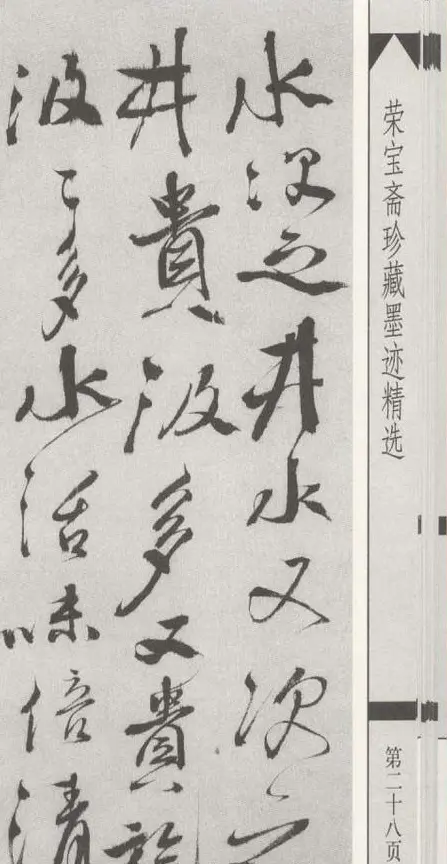 水次之井水又次之
井貴汲多又貴旋
汲汲多水活味倍清
荣宝斋珍藏墨迹精选
第二十八页